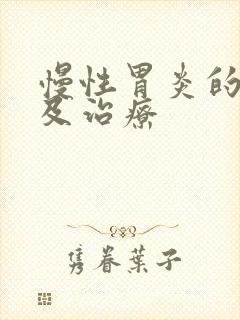 慢性胃炎的
及治疗
隽眷叶子